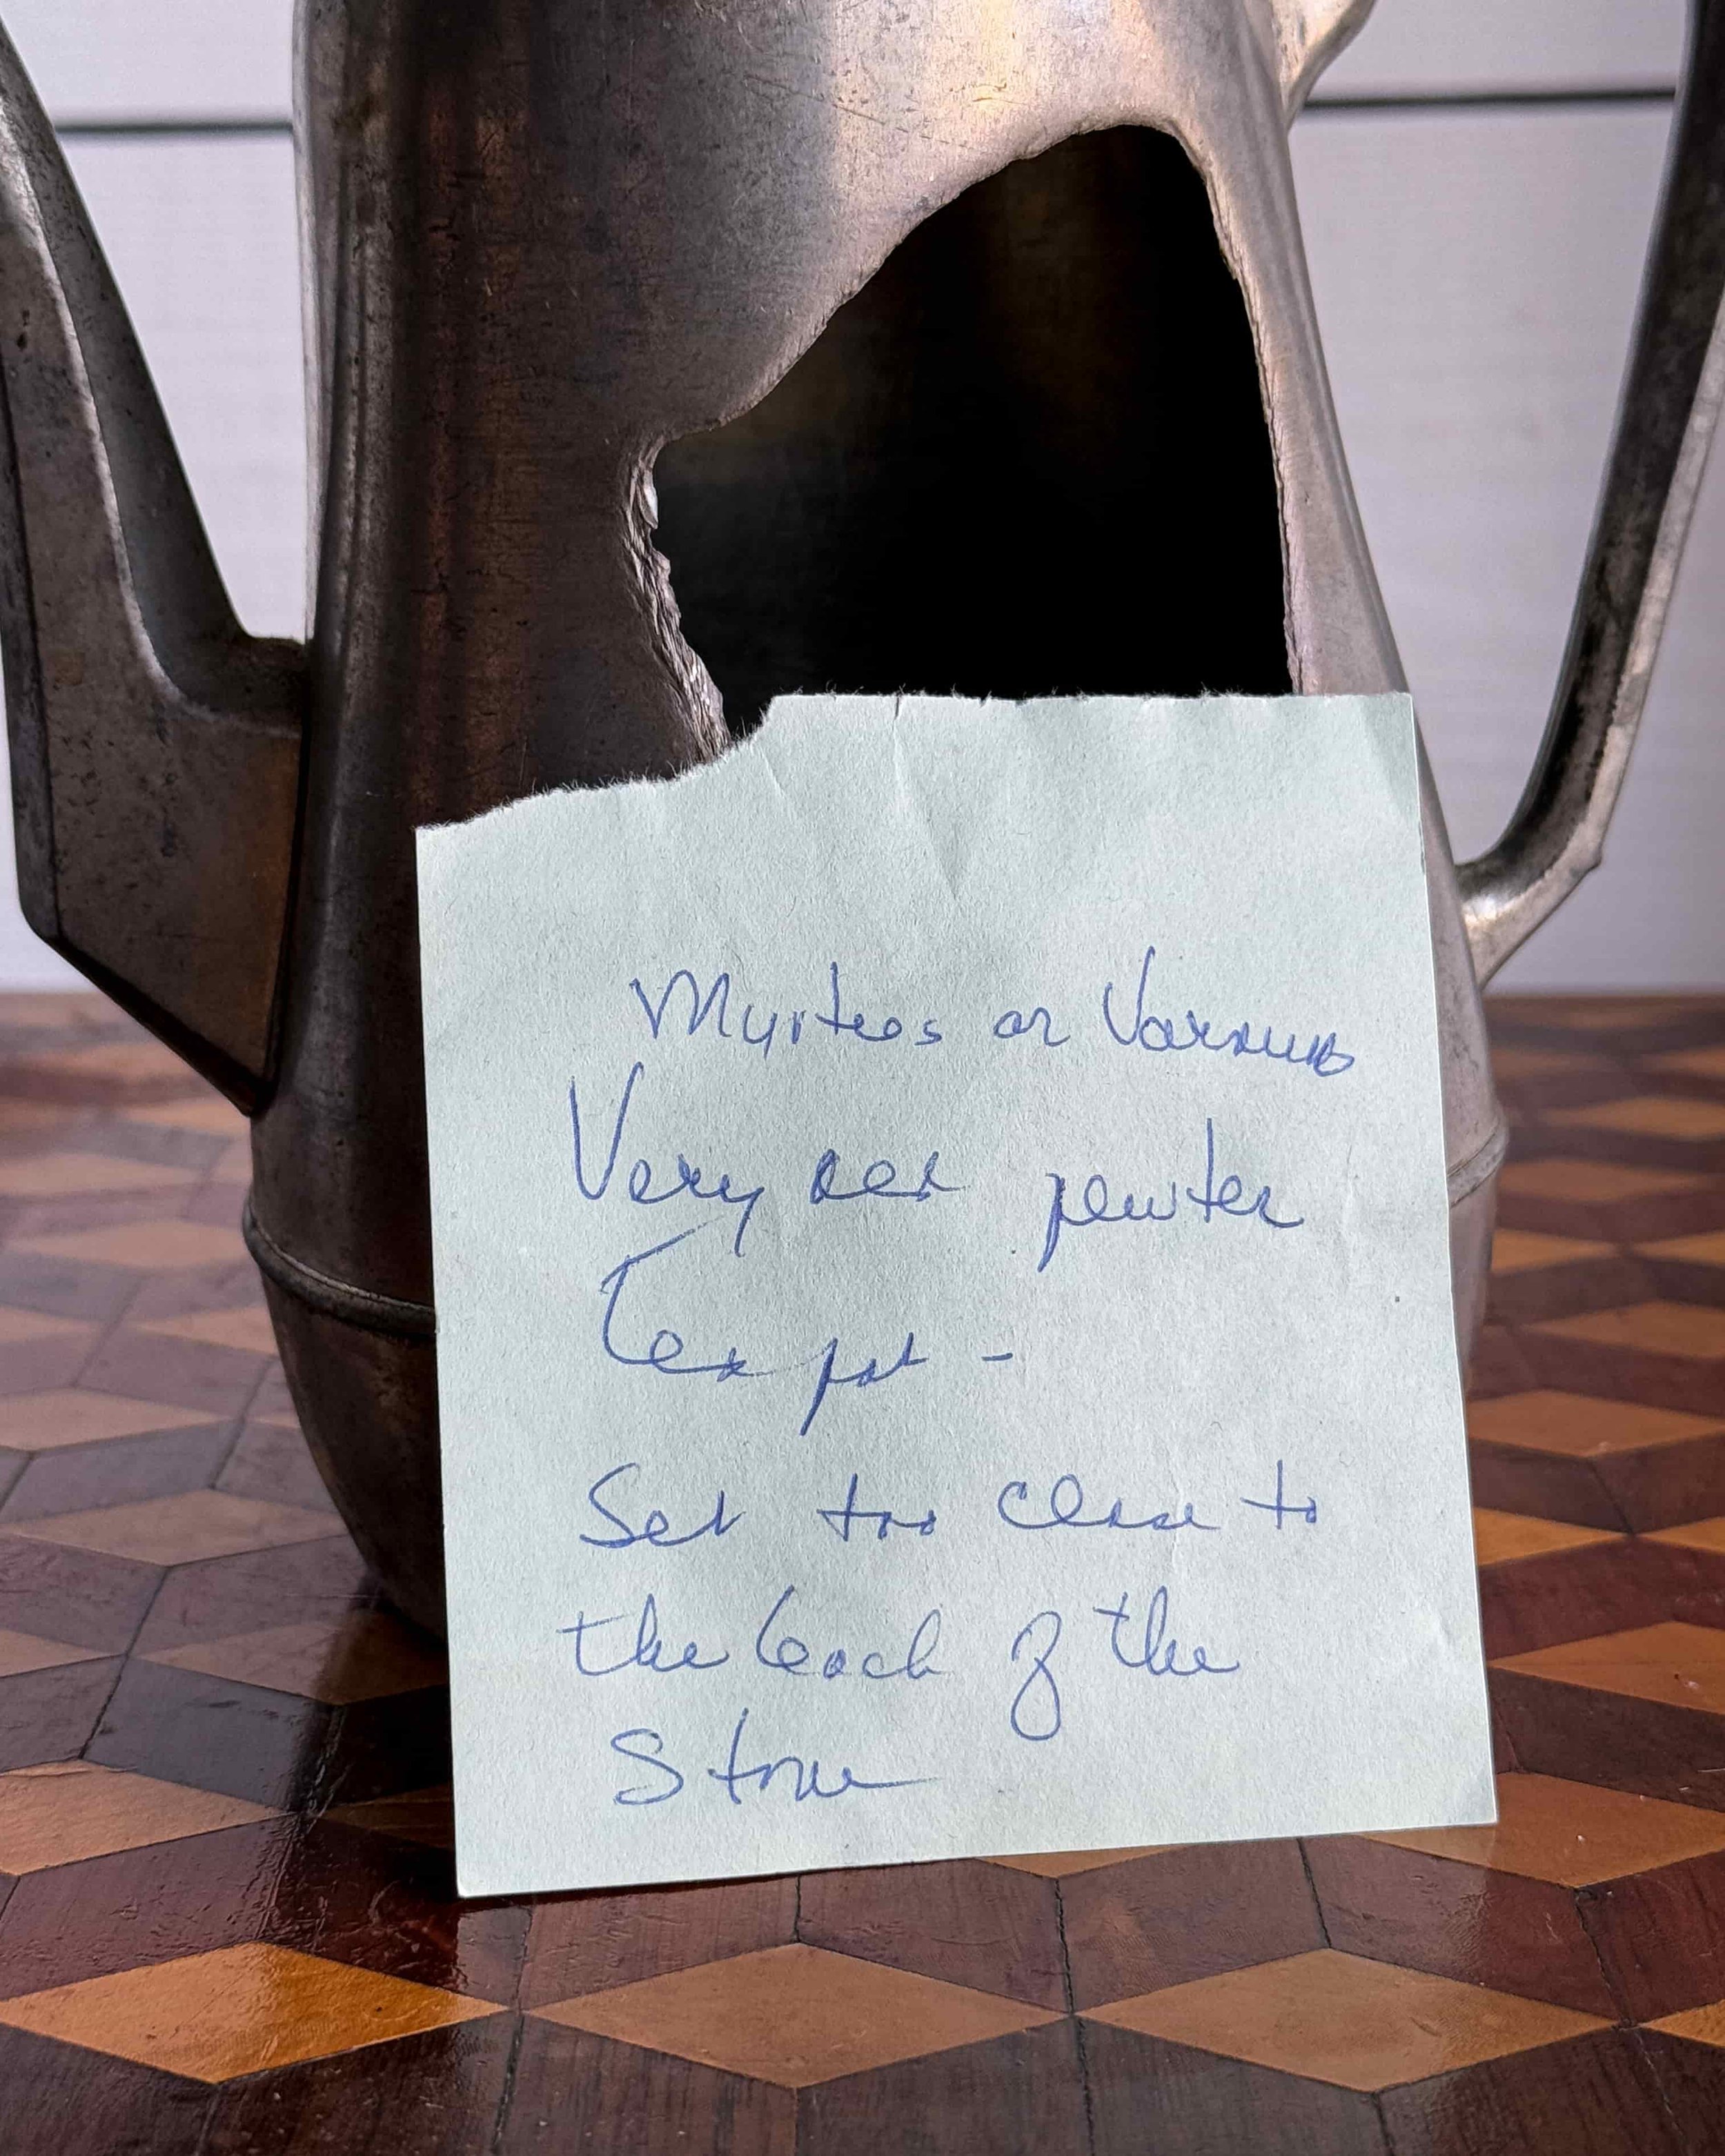 Myrtles or Varnums
Very old pewter
Tea pot -
Set too close to
the back of the
Stove